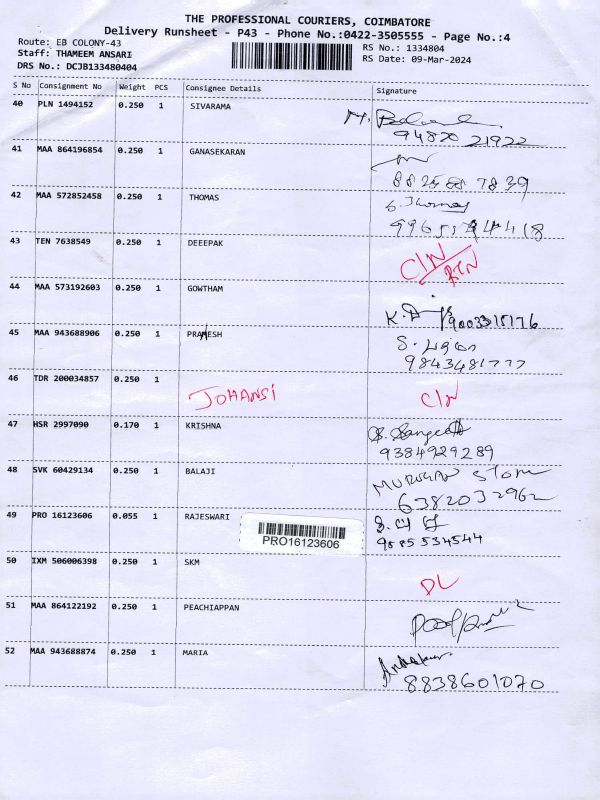 THE PROFESSIONAL COURIERS, COIMBATORE
Delivery Runsheet - P43 - Phone No.:0422-3505555 - Page No.:4
Route: EB COLONY-43
RS No.: 1334804
Staff: THAMEEM ANSARI
RS Date: 09-Mar-2024
DRS No.: DCJB133480404
S No Consignment No Weight PCS Consignee Details Signature
40 PLN 1494152 0.250 1 SIVARAMA
94870 21922
41 MAA 864196854 0.250 1 GANASEKARAN
42 MAA 572852458 0.250 1 THOMAS S. Thomas
43 TEN 7638549 0.250 1 DEEEPAK C/N
44 MAA 573192603 0.250 1 GOWTHAM
45 MAA 943688906 0.250 1 PRAMESH
9843481777
46 TDR 200034857 0.250 1 JOHANSI C/N
47 HSR 2997090 0.170 1 KRISHNA S. Sangeeth
9384929289
48 SVK 60429134 0.250 1 BALAJI MURUGAN Store
6382032962
49 PRO 16123606 0.055 1 RAJESWARI
PRO16123606
9885534544
50 IXM 506006398 0.250 1 SKM DL
51 MAA 864122192 0.250 1 PEACHIAPPAN
52 MAA 943688874 0.250 1 MARIA
8838601070